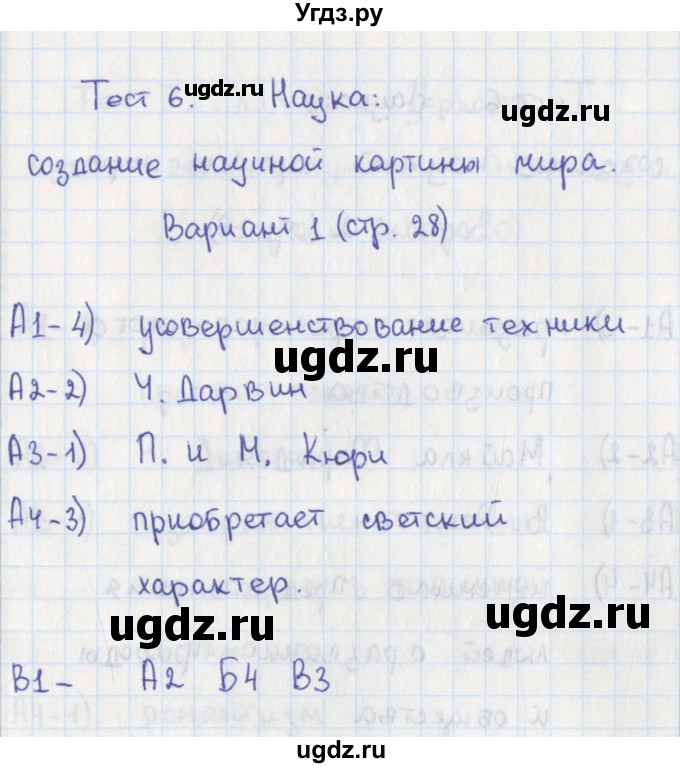 Угдз.ру
Тест 6. ugdz.ru Наука:
ugdz.ru
создание научной картины мира.
Вариант 1 (стр. 28)
А1-4) усовершенствование техники
ugdz.ru
А2-2) Ч. Дарвин
ugdz.ru
А3-1) П. и М. Кюри
А4-3) приобретает светский
характер.
ugdz.ru
ugdz.ru
В1- А2 Б4 В3
ugdz.ru
ugdz.ru